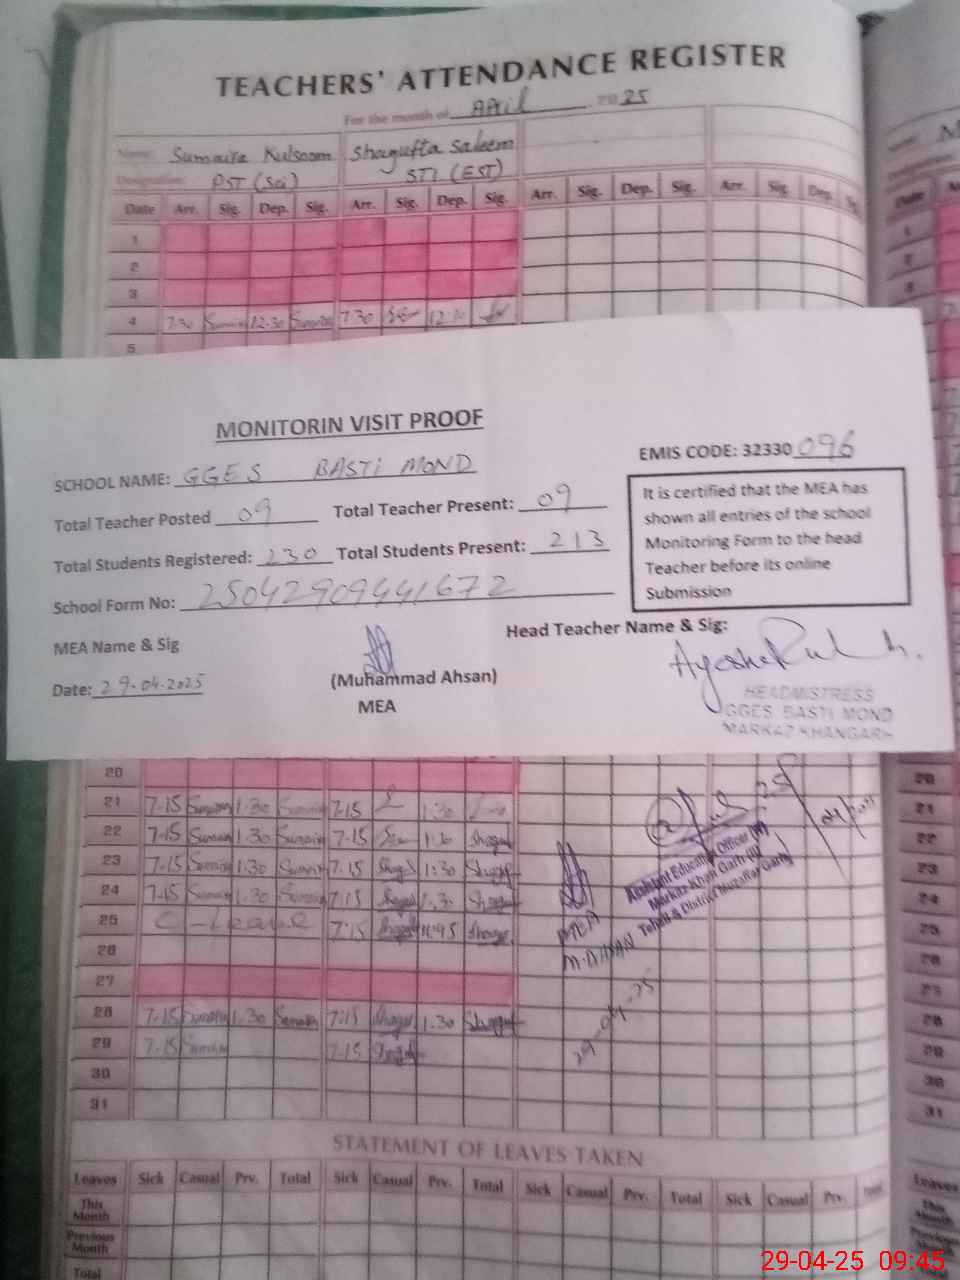 TEACHERS' ATTENDANCE REGISTER
For the month of April 2025
Name: Sumaira Kulsoom Shagufta Saleem
Designation: PST (Sci) STI (EST)
Date Arr. Sig. Dep. Sig. Arr. Sig. Dep. Sig. Arr. Sig. Dep. Sig. Arr. Sig. Dep.
1
2
3
4 7:30 12:30 7:30
5
MONITORIN VISIT PROOF
EMIS CODE: 32330 096
SCHOOL NAME: GGES BASTI MOND
Total Teacher Posted 09 Total Teacher Present: 09
Total Students Registered: 230 Total Students Present: 213
School Form No: 25042909441672
It is certified that the MEA has
shown all entries of the school
Monitoring Form to the head
Teacher before its online
Submission
MEA Name & Sig
Head Teacher Name & Sig:
Date: 29.04.2025
(Muhammad Ahsan)
MEA
HEADMISTRESS
GGES. BASTI MOND
MARKAZ KHANGARH
20
21 7-15 1.30 7-15 1:30
22 7-15 1.30 7-15
23 7-15 1.30 7.15 1:30
24 7-15 1.30 7:15 1.30
25 C-Leave 7:15 11:45
26
27
28 7-15 1.30 7:15 1.30
29 7-15 7-15
30
31
Assistant Education Officer
Markaz Khan Garh
Tehsil & District Muzaffar Garh
MEA
29-04-25
STATEMENT OF LEAVES TAKEN
Leaves Sick Casual Prv. Total Sick Casual Prv. Total Sick Casual Prv. Total Sick Casual Prv.
This Month
Previous Month
Total
20
21
22
23
24
25
28
29
30
31
29-04-25 09:45